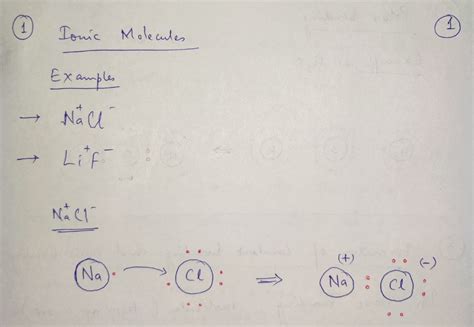 1 Ionic Molecules 1
Examples
→ Na⁺Cl⁻
→ Li⁺F⁻
Na⁺Cl⁻
(+) (-)
Na → Cl ⇒ Na Cl